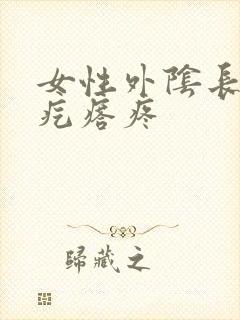 女性外陰長
疙瘩疼
歸藏之